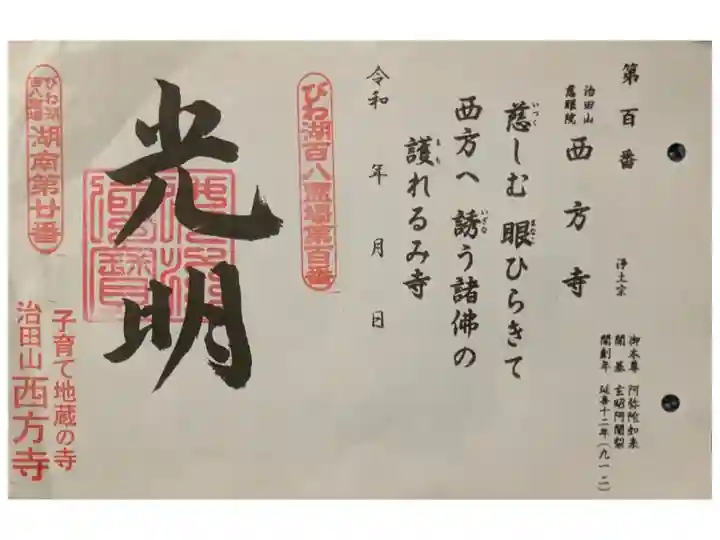 第百番
治田山
慈眼院
西方寺
浄土宗
御本尊 阿弥陀如来
開基 玄昭阿闍梨
開創年 延喜十二年(九一二)
慈しむ眼ひらきて
いつく
まなこ
西方へ誘う諸佛の
いざな
護れるみ寺
まも
令和 年 月 日
びわ湖百八霊場第百番
光明
びわ湖
百八霊場
湖南第廿番
子育て地蔵の寺
治田山 西方寺